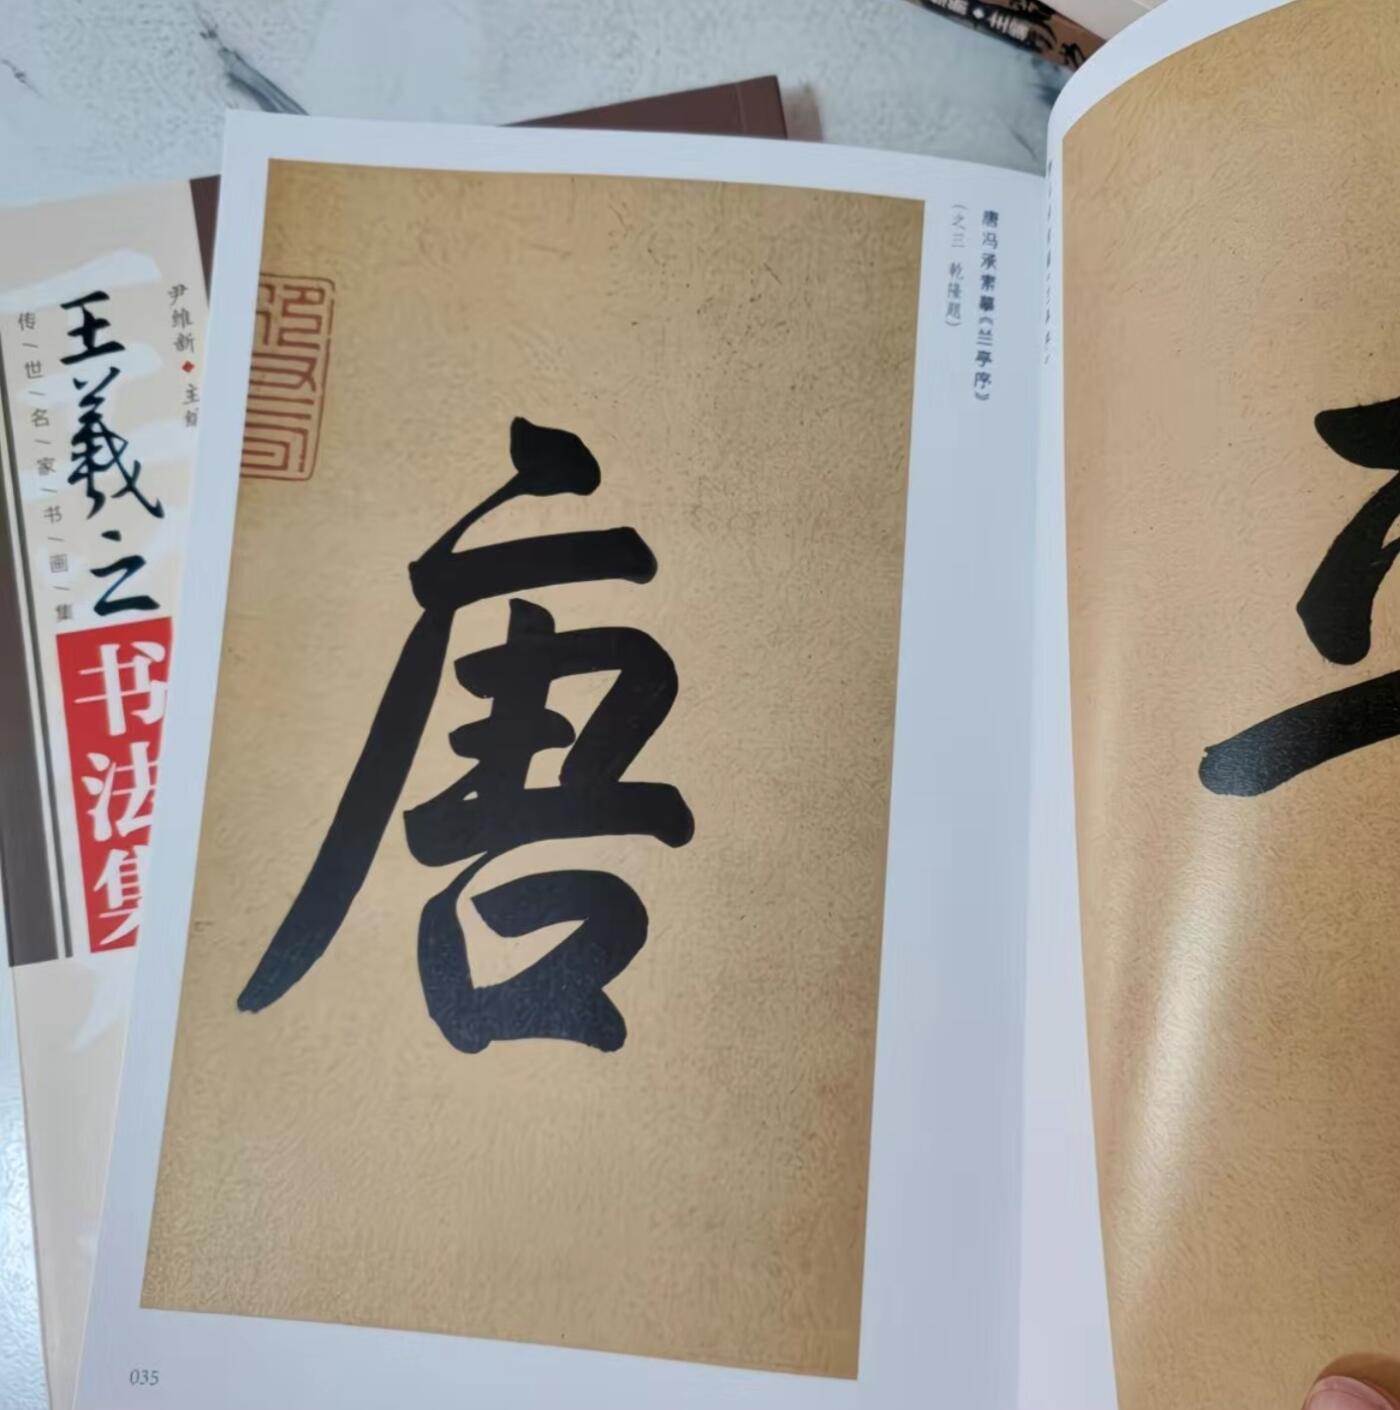 唐
唐冯承素摹《兰亭序》
(之三 乾隆题)
035
尹维新◆主编
王羲之
书法集
传世名家书画集